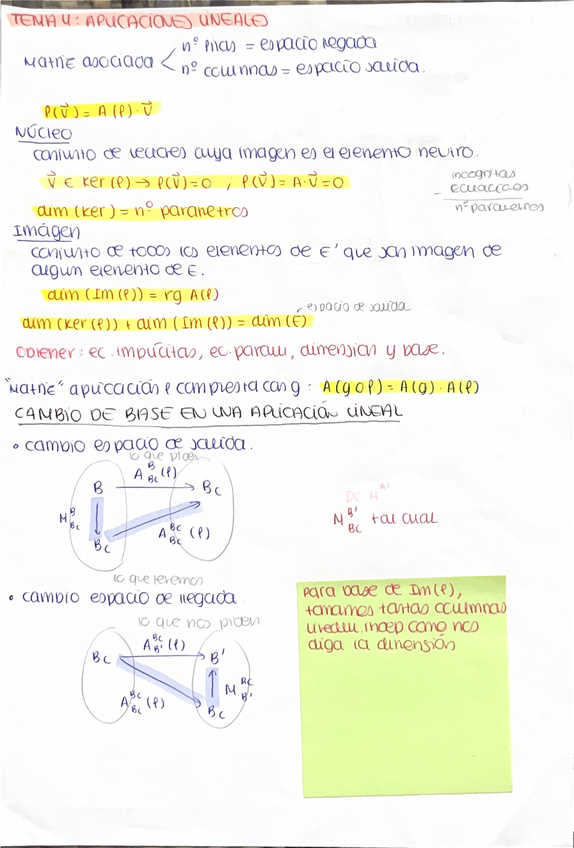 TEMA 4: APLICACIONES LINEALES
nº filas = espacio llegada
Matriz asociada
nº columnas = espacio salida.
f(v⃗) = A(f)·v⃗
NÚCLEO
conjunto de vectores cuya imagen es el elemento neutro.
v⃗ ∈ Ker(f) → f(v⃗)=0 ; f(v⃗)=A·v⃗=0
incognitas
- ecuaciones
nº parametros
dim(Ker) = nº parametros
Imágen
conjunto de todos los elementos de E' que son imagen de
algun elemento de E.
dim(Im(f)) = rg A(f)
espacio de salida
dim(Ker(f)) + dim(Im(f)) = dim(E)
Obtener: ec. implícitas, ec. param, dimension y base.
"Matriz" aplicación f compuesta con g: A(g∘f) = A(g)·A(f)
CAMBIO DE BASE EN UNA APLICACIÓN LINEAL
• cambio espacio de salida.
lo que piden
A^B_Bc(f)
B Bc
M^B_Bc
Bc A^Bc_Bc(f)
M^B'_Bc tal cual
lo que tenemos
• cambio espacio de llegada
lo que nos piden
A^Bc_B'(f)
Bc B'
M^Bc_B'
A^Bc_Bc(f) Bc
para base de Im(f),
tomamos tantas columnas
linealm. indep como nos
diga la dimensión